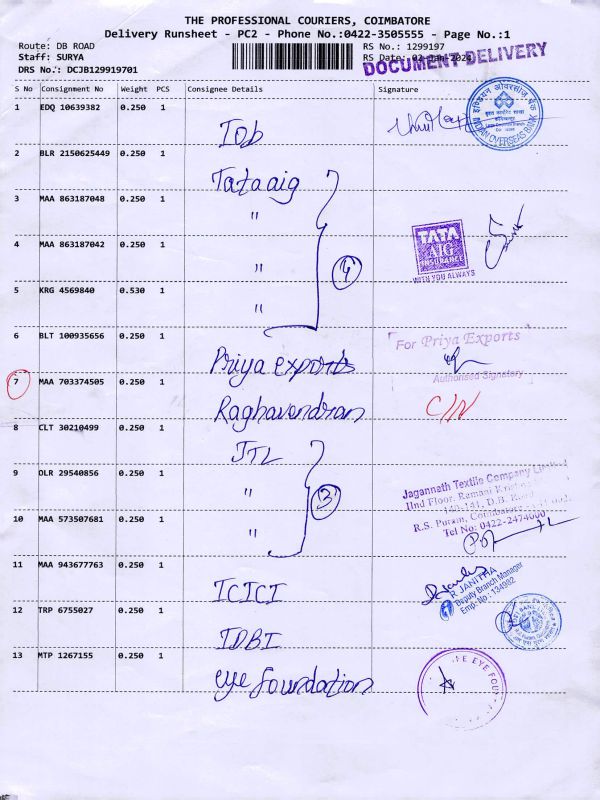 THE PROFESSIONAL COURIERS, COIMBATORE
Delivery Runsheet - PC2 - Phone No.:0422-3505555 - Page No.:1
Route: DB ROAD
RS No.: 1299197
Staff: SURYA
RS Date: 02-Jan-2024
DOCUMENT DELIVERY
DRS No.: DCJB129919701
S No Consignment No Weight PCS Consignee Details Signature
1 EDQ 10639382 0.250 1 IOb
INDIAN OVERSEAS BANK
2 BLR 2150625449 0.250 1 Tata aig
3 MAA 863187048 0.250 1 "
4 MAA 863187042 0.250 1 "
5 KRG 4569840 0.530 1 "
4
TATA
AIG
INSURANCE
WITH YOU ALWAYS
6 BLT 100935656 0.250 1 Priya exports
For Priya Exports
Authorised Signatory
7 MAA 703374505 0.250 1 Raghavendran C/N
8 CLT 30210499 0.250 1 JTL
9 OLR 29540856 0.250 1 "
10 MAA 573507681 0.250 1 "
3
Jagannath Textile Company Limited
IInd Floor, Raman
140-141, D.B. Road
R.S. Puram, Coimbatore
Tel No: 0422-2474000
11 MAA 943677763 0.250 1 ICICI
R JANITHA
Deputy Branch Manager
Emp. No.: 134982
12 TRP 6755027 0.250 1 IDBI
13 MTP 1267155 0.250 1 eye foundation
EYE FOU